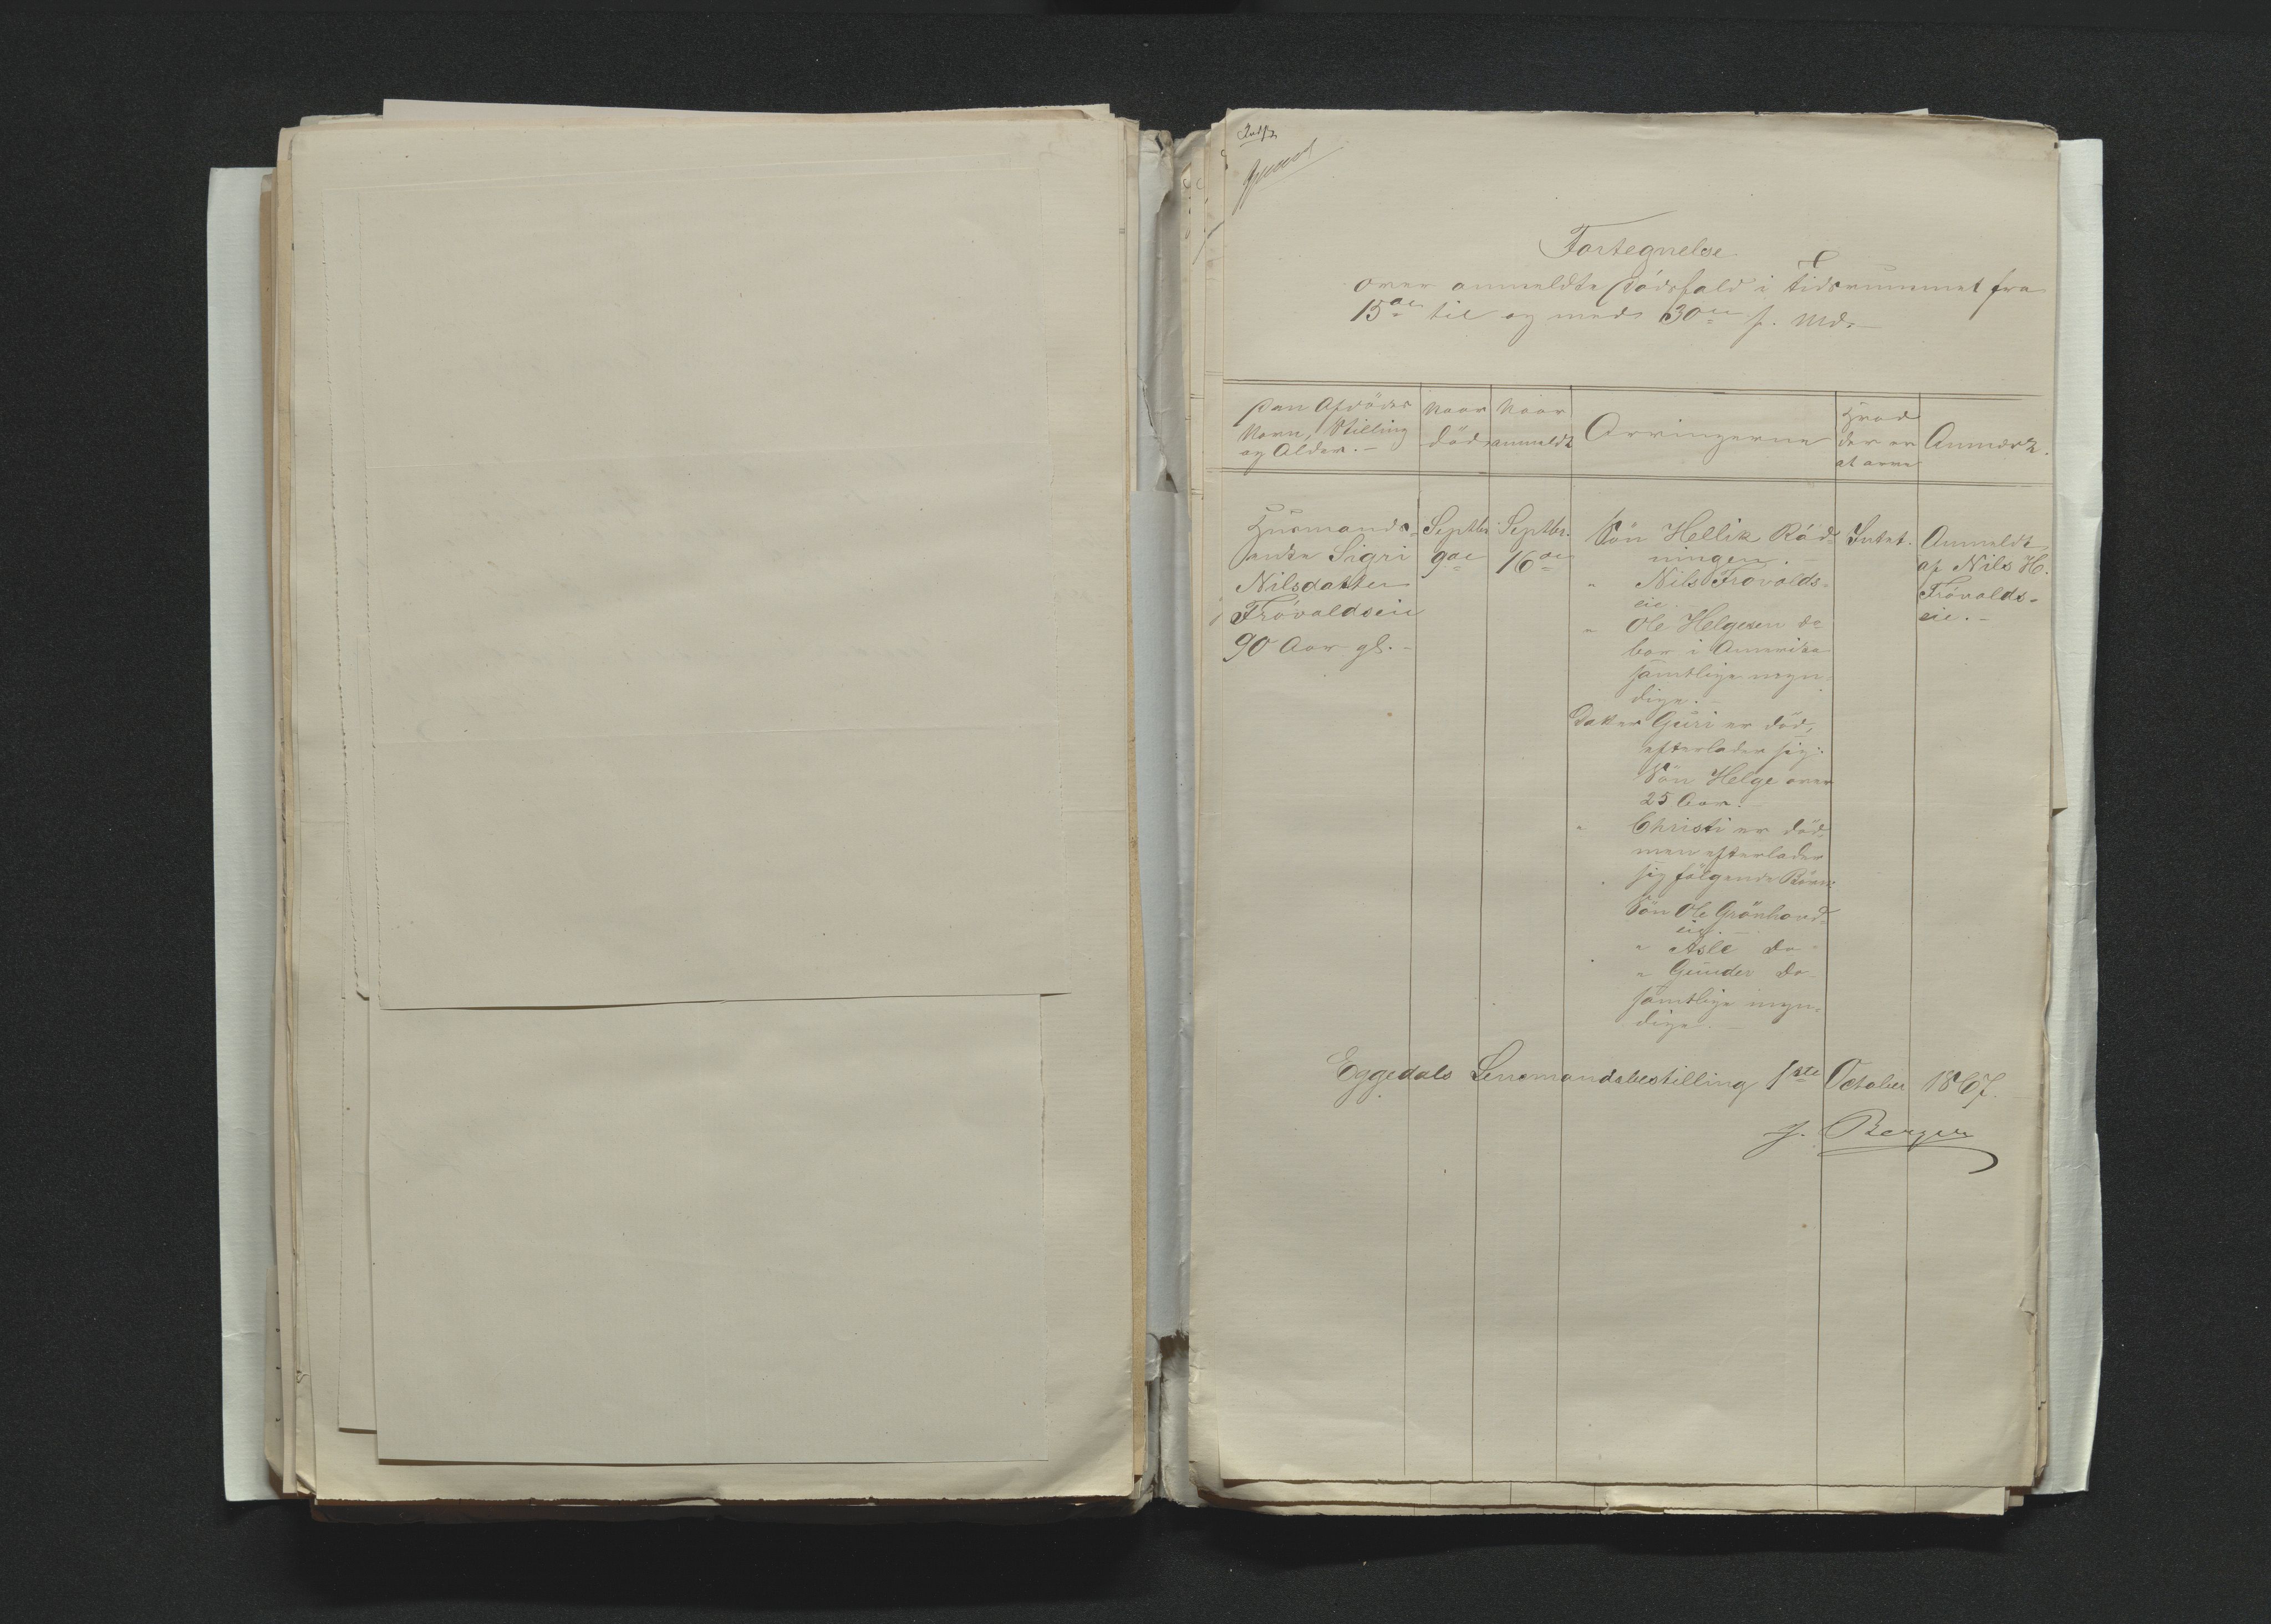 Fortegnelse
over anmeldte Dödsfald i Tidsrummet fra
15de til og med 30te f. Md.
Den Afdödes
Navn, Stilling
og Alder.
Naar
död
Naar
anmeldt
Arvingerne
Hvad
der er
at arve
Anmærk.
Husmands-
enke Sigri
Nilsdatter
Frövaldseie
90 Aar gl.
Septbr
9de
Septbr.
16de
Sön Hellik Röd-
ningen.
" Nils Frövalds-
eie.
" Ole Helgesen de
bor i Amerika
samtlige myn-
dige.
Datter Guri er död,
efterlader sig:
Sön Helge over
25 Aar.
" Christi er död,
men efterlader
sig fölgende Börn:
Sön Ole Grönhovd-
eie.
" Asle do
" Gunder do
samtlige myn-
dige.
Intet.
Anmeldt
af Nils H.
Frövalds-
eie.
Eggedals Lensmandsbestilling 1ste October 1867.
J. Berger